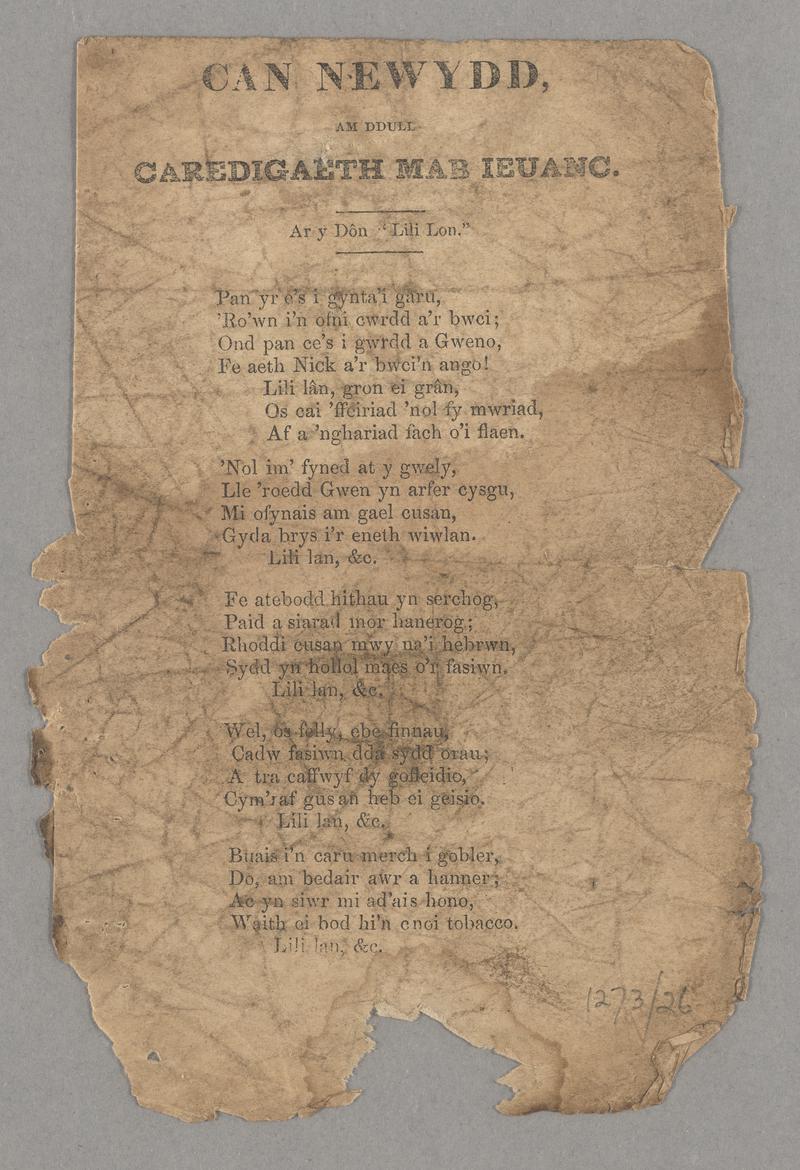 CAN NEWYDD,
AM DDULL
CAREDIGAETH MAB IEUANC.
Ar y Dôn "Lili Lon."
Pan yr e's i gynta'i garu,
'Ro'wn i'n ofni cwrdd a'r bwci;
Ond pan ce's i gwrdd a Gweno,
Fe aeth Nick a'r bwci'n ango!
Lili lân, gron ei grân,
Os cai 'ffeiriad 'nol fy mwriad,
Af a 'nghariad fach o'i flaen.
'Nol im' fyned at y gwely,
Lle 'roedd Gwen yn arfer cysgu,
Mi ofynais am gael cusan,
Gyda brys i'r eneth wiwlan.
Lili lan, &c.
Fe atebodd hithau yn serchog,
Paid a siarad mor hanerog;
Rhoddi cusan mwy na'i hebrwn,
Sydd yn hollol maes o'r fasiwn.
Lili lan, &c.
Wel, os felly, ebe finnau,
Cadw fasiwn dda sydd orau;
A tra caffwyf dy gofleidio,
Cym'raf gusan heb ei geisio.
Lili lan, &c.
Buais i'n caru merch i gobler,
Do, am bedair awr a hanner;
Ac yn siwr mi ad'ais hono,
Waith ei bod hi'n cnoi tobacco.
Lili lan, &c.
1273/26